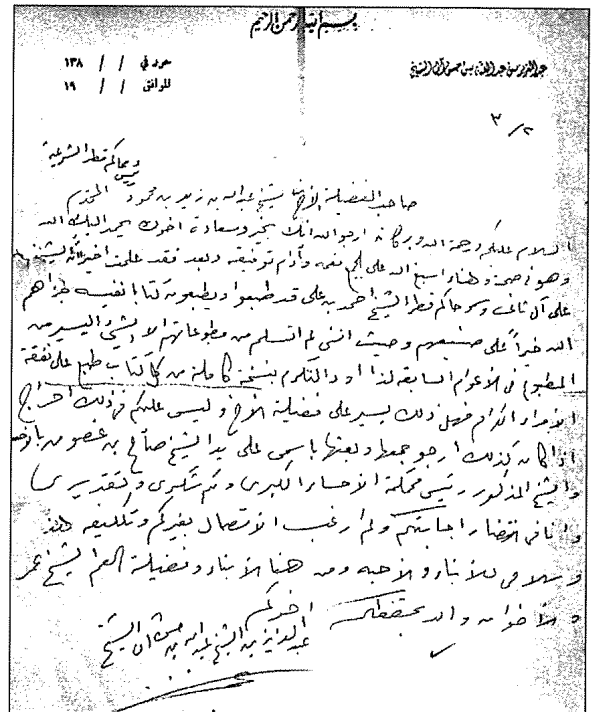 بسم الله الرحمن الرحيم
عبد العزيز بن عبد الله بن حسن آل الشيخ
حرر في / / ١٣٨
الموافق / / ١٩
٣/٢
رئيس محاكم قطر الشرعية
صاحب الفضيلة الأخ الشيخ عبد الله بن زيد بن محمود المحترم
السلام عليكم ورحمة الله وبركاته ارجو الله انك بخير وسعادة اخوك يحمد اليك الله
وهو في صحة وهناء اسبغ الله على الجميع نعمه وأدام توفيقه وبعد فقد علمت أخيرا الشيخ
علي آل ثاني وسمو حاكم قطر الشيخ احمد بن علي قد طبعوا ويطبعون كتبا نفيسه جزاهم
الله خيراً على صنيعهم وحيث انني لم اتسلم من مطبوعاتهم الا الشيء اليسير من
المطبوع في الأعوام السابقه لذا اود التكرم بنسخة كاملة من كل كتاب طبع على نفقة
الأمراء الكرام فهل ذلك يسير على فضيلة الأخ وليس عليكم في ذلك احراج
اذا كان كذلك ارجو جمعها وبعثها باسمي على يد الشيخ صالح بن غصون
والشيخ المذكور رئيس محكمة الاحساء الكبرى ولكم شكري وتقديري
وانا في انتظار اجابتكم ولم ارغب الاتصال بغيركم وتكليفه
وسلامي للأبناء والأحبه ومن هنا الأبناء وفضيلة العم الشيخ عمر
والاخوان والله يحفظكم
اخوكم
عبد العزيز بن الشيخ عبد الله بن حسن آل الشيخ